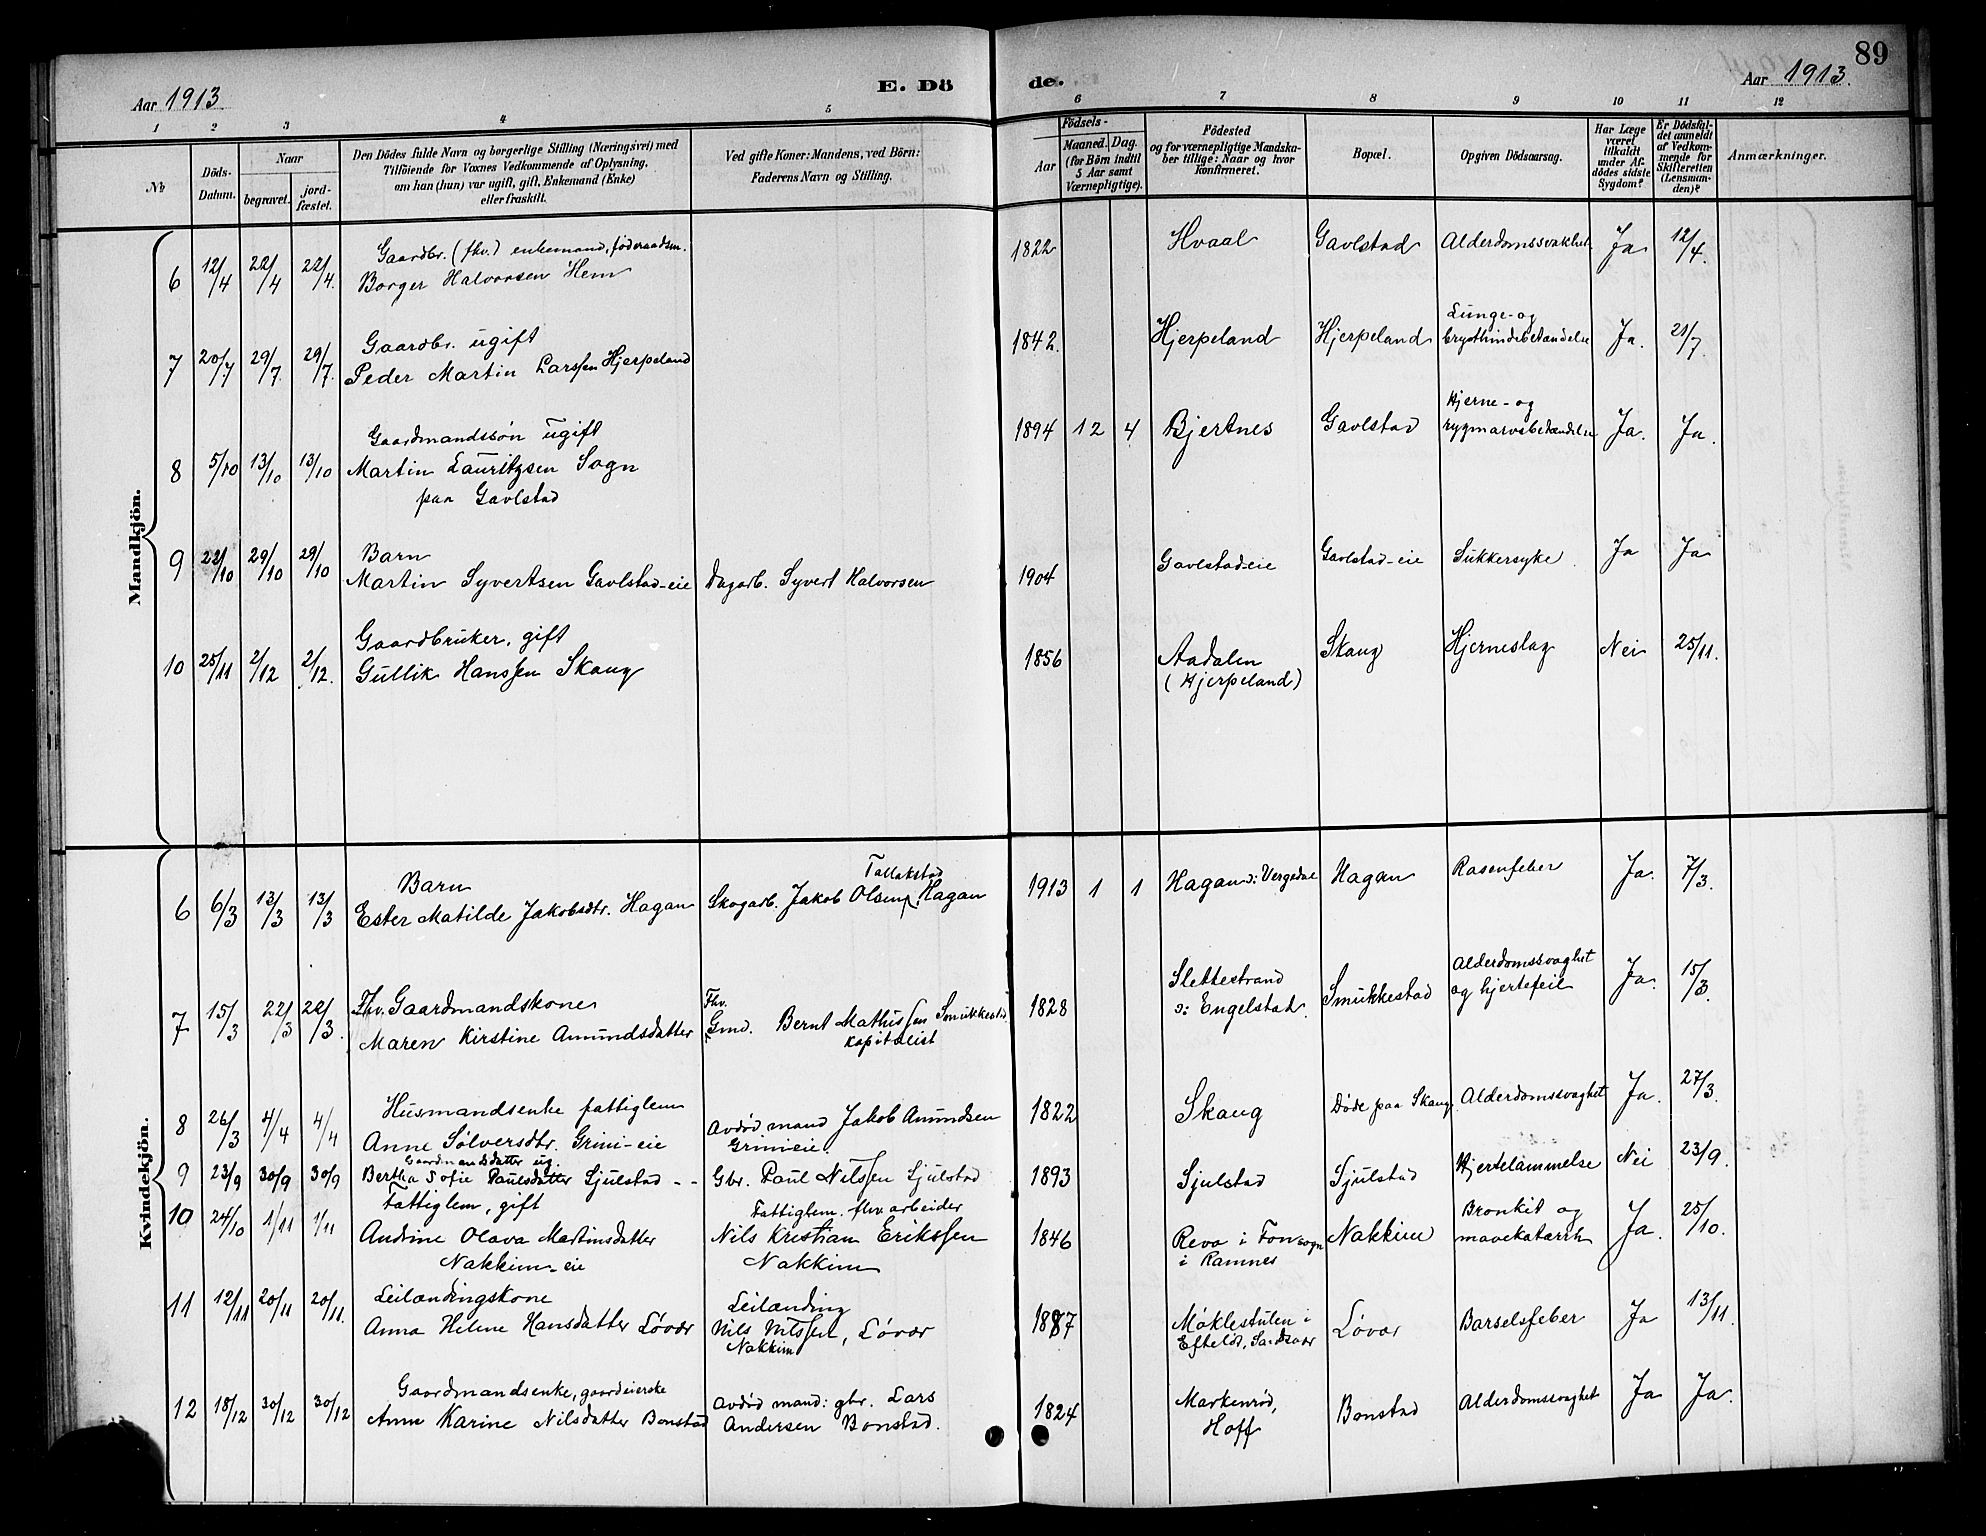 89
Aar 1913
E. Dö
de.
Aar 1913.
1 2 3 4 5 6 7 8 9 10 11 12
No
Döds-Datum.
Naar
begravet.
jord-fæstet.
Den Dödes fulde Navn og borgerlige Stilling (Næringsvei) med
Tilföiende for Voxnes Vedkommende af Oplysning,
om han (hun) var ugift, gift, Enkemand (Enke)
eller fraskilt.
Ved gifte Koner: Mandens, ved Börn:
Faderens Navn og Stilling.
Födsels-
Aar
Maaned. Dag.
(for Börn indtil
5 Aar samt
Værnepligtige).
Födested
og for værnepligtige Mandska-
ber tillige: Naar og hvor
konfirmeret.
Bopæl.
Opgiven Dödsaarsag.
Har Læge
været
tilkaldt
under Af-
dödes sidste
Sygdom?
Er Dödsfal-
det anmeldt
af Vedkom-
mende for
Skifteretten
(Lensman-
den)?
Anmærkninger.
Mandkjön.
Gaardbr. (fhv.) enkemand, föderaadsm.
6 12/4 22/4 22/4. Borger Halvorsen Hem 1822 Hvaal Gavlstad Alderdomssvakhet Ja 12/4.
Gaardbr. ugift
7 20/7 29/7. 29/7. Peder Martin Larssen Hjerpeland 1842. Hjerpeland Hjerpeland Lunge- og
brysthindebetændelse Ja. 21/7.
Gaardmandssön ugift
8 5/10 13/10 13/10 Martin Lauritzsen Sogn
paa Gavlstad 1894 12 4 Bjertnes Gavlstad Hjerne- og
rygmarvsbetændelse Ja. Ja.
Barn
9 22/10 29/10 29/10 Martin Syvertsen Gavlstad-eie Dagarb. Syvert Halvorsen 1904 Gavlstad-eie Gavlstad-eie Sukkersyke. Ja Ja
Gaardbruker, gift
10 25/11 2/12 2/12. Gullik Hanssen Skaug 1856 Aadalen
(Hjerpeland) Skaug Hjerneslag Nei 25/11.
Kvindekjön.
Barn
6 6/3 13/3 13/3 Ester Matilde Jakobsdtr. Hagan Skogarb. Jakob Olsen Tollakstad Hagan 1913 1 1 Hagan Hagan Rosenfeber Ja. 7/3.
Fhv. Gaardmandskone
7 15/3 22/3 22/3. Maren Kirstine Amundsdatter Fhv.
Gmd. Bernt Mathissen Smukkestad
kapitalist 1828 Slettestrand
ɔ: Engelstad. Smukkestad Alderdomssvaghet
og hjertefeil Ja. 15/3.
Husmandsenke fattiglem
8 26/3 4/4 4/4 Anne Sölversdtr. Grini-eie Avdöd mand Jakob Amundsen
Grinieie. 1822 Skaug Döde paa Skaug. Alderdomssvaghet Ja. 27/3.
Gaardmandsdatter ug.
9 23/9 30/9 30/9 Bertha Sofie Paulsdatter Sjulstad - - Gbr. Paul Nilssen Sjulstad 1893 Sjulstad Sjulstad Hjertelammelse Nei 23/9.
Fattiglem, gift
10 24/10 1/11 1/11 Andrine Olava Martinsdatter
Nakkim-eie Fattiglem, fhv. arbeider
Nils Kristian Erikssen
Nakkim 1846 Reva i Fon sogn
i Ramnes Nakkim Bronkit og
mavekatarrh Ja. 25/10.
Leilændingskone
11 12/11 20/11 20/11. Anna Helene Hansdatter Lövær Leilænding
Nils Nilssen, Lövær
Nakkim 1887 i
Efteløt, Sandsvær Lövær Barselsfeber Ja 13/11.
Gaardmandsenke, gaardeierske
12 18/12 30/12 30/12 Anne Karine Nilsdatter Bonstad Avdöd mand: gbr. Lars
Andersen Bonstad. 1824 Markenröd,
Hoff Bonstad Alderdomssvaghet Ja Ja.